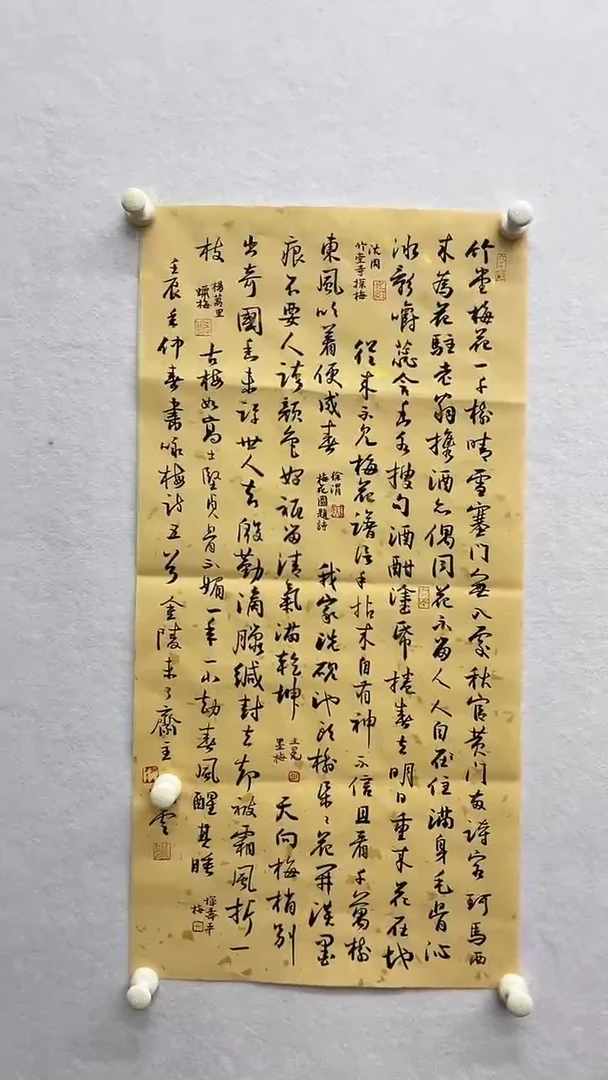 竹堂梅花一千樹晴雪塞門無入處秋官黄門兩詩客珂馬西
来為花駐老翁攜酒亦偶同花不留人人自在住滿身毛骨沁
冰影嚼蕊含香各搜句酒酣塗紙捲春去明日重来花在地
沈周
竹堂寺探梅
從来不見梅花譜信手拈来自有神不信且看千萬樹
東風吹着便成春
徐渭
梅花圖題詩
我家洗硯池頭樹朵〻花開淡墨
痕不要人誇顔色好祗留清氣滿乾坤
王冕
墨梅
天向梅梢别
出奇國香未許世人知殷勤滴臘緘封去却被霜風折一
枝
楊萬里
蠟梅
古梅如高士堅貞骨不媚一年一小劫春風醒其睡
惲壽平
梅
壬辰年仲春書咏梅诗五首金陵未了齋主雲